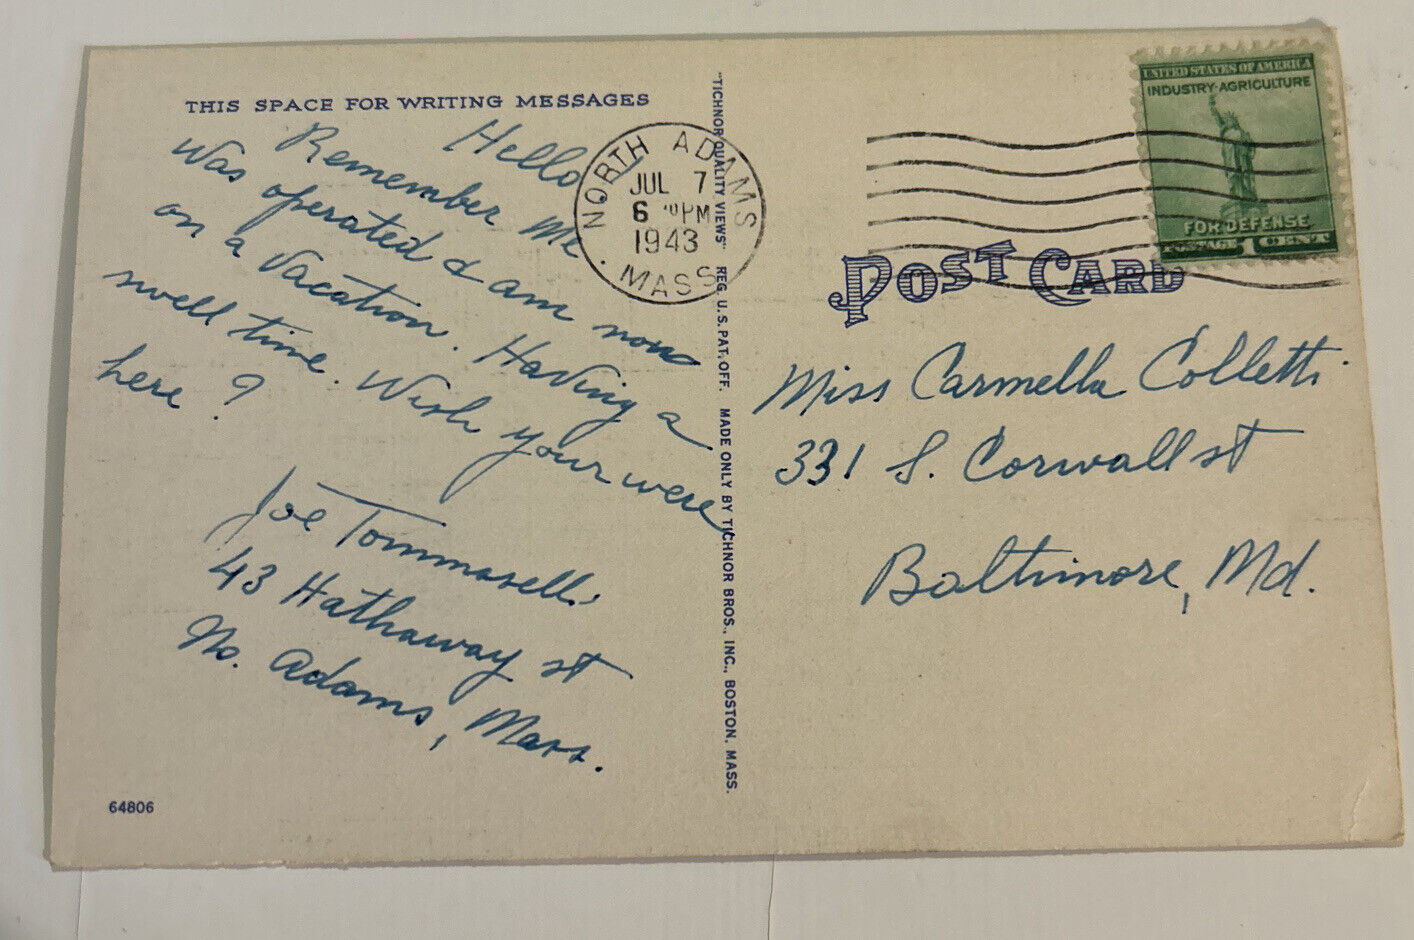 THIS SPACE FOR WRITING MESSAGES
Hello
Remember Me.
Was operated & am now
on a Vacation. Having a
swell time. Wish your were
here?
Joe Tommaselli
43 Hathaway st
No. Adams, Mass.
64806
"TICHNOR QUALITY VIEWS" REG. U. S. PAT. OFF. MADE ONLY BY TICHNOR BROS., INC., BOSTON, MASS.
NORTH ADAMS
JUL 7
6 PM
1943
MASS.
UNITED STATES OF AMERICA
INDUSTRY·AGRICULTURE
FOR DEFENSE
POSTAGE 1 CENT
POST CARD
Miss Carmella Colletti
331 S. Corwall st
Baltimore, Md.